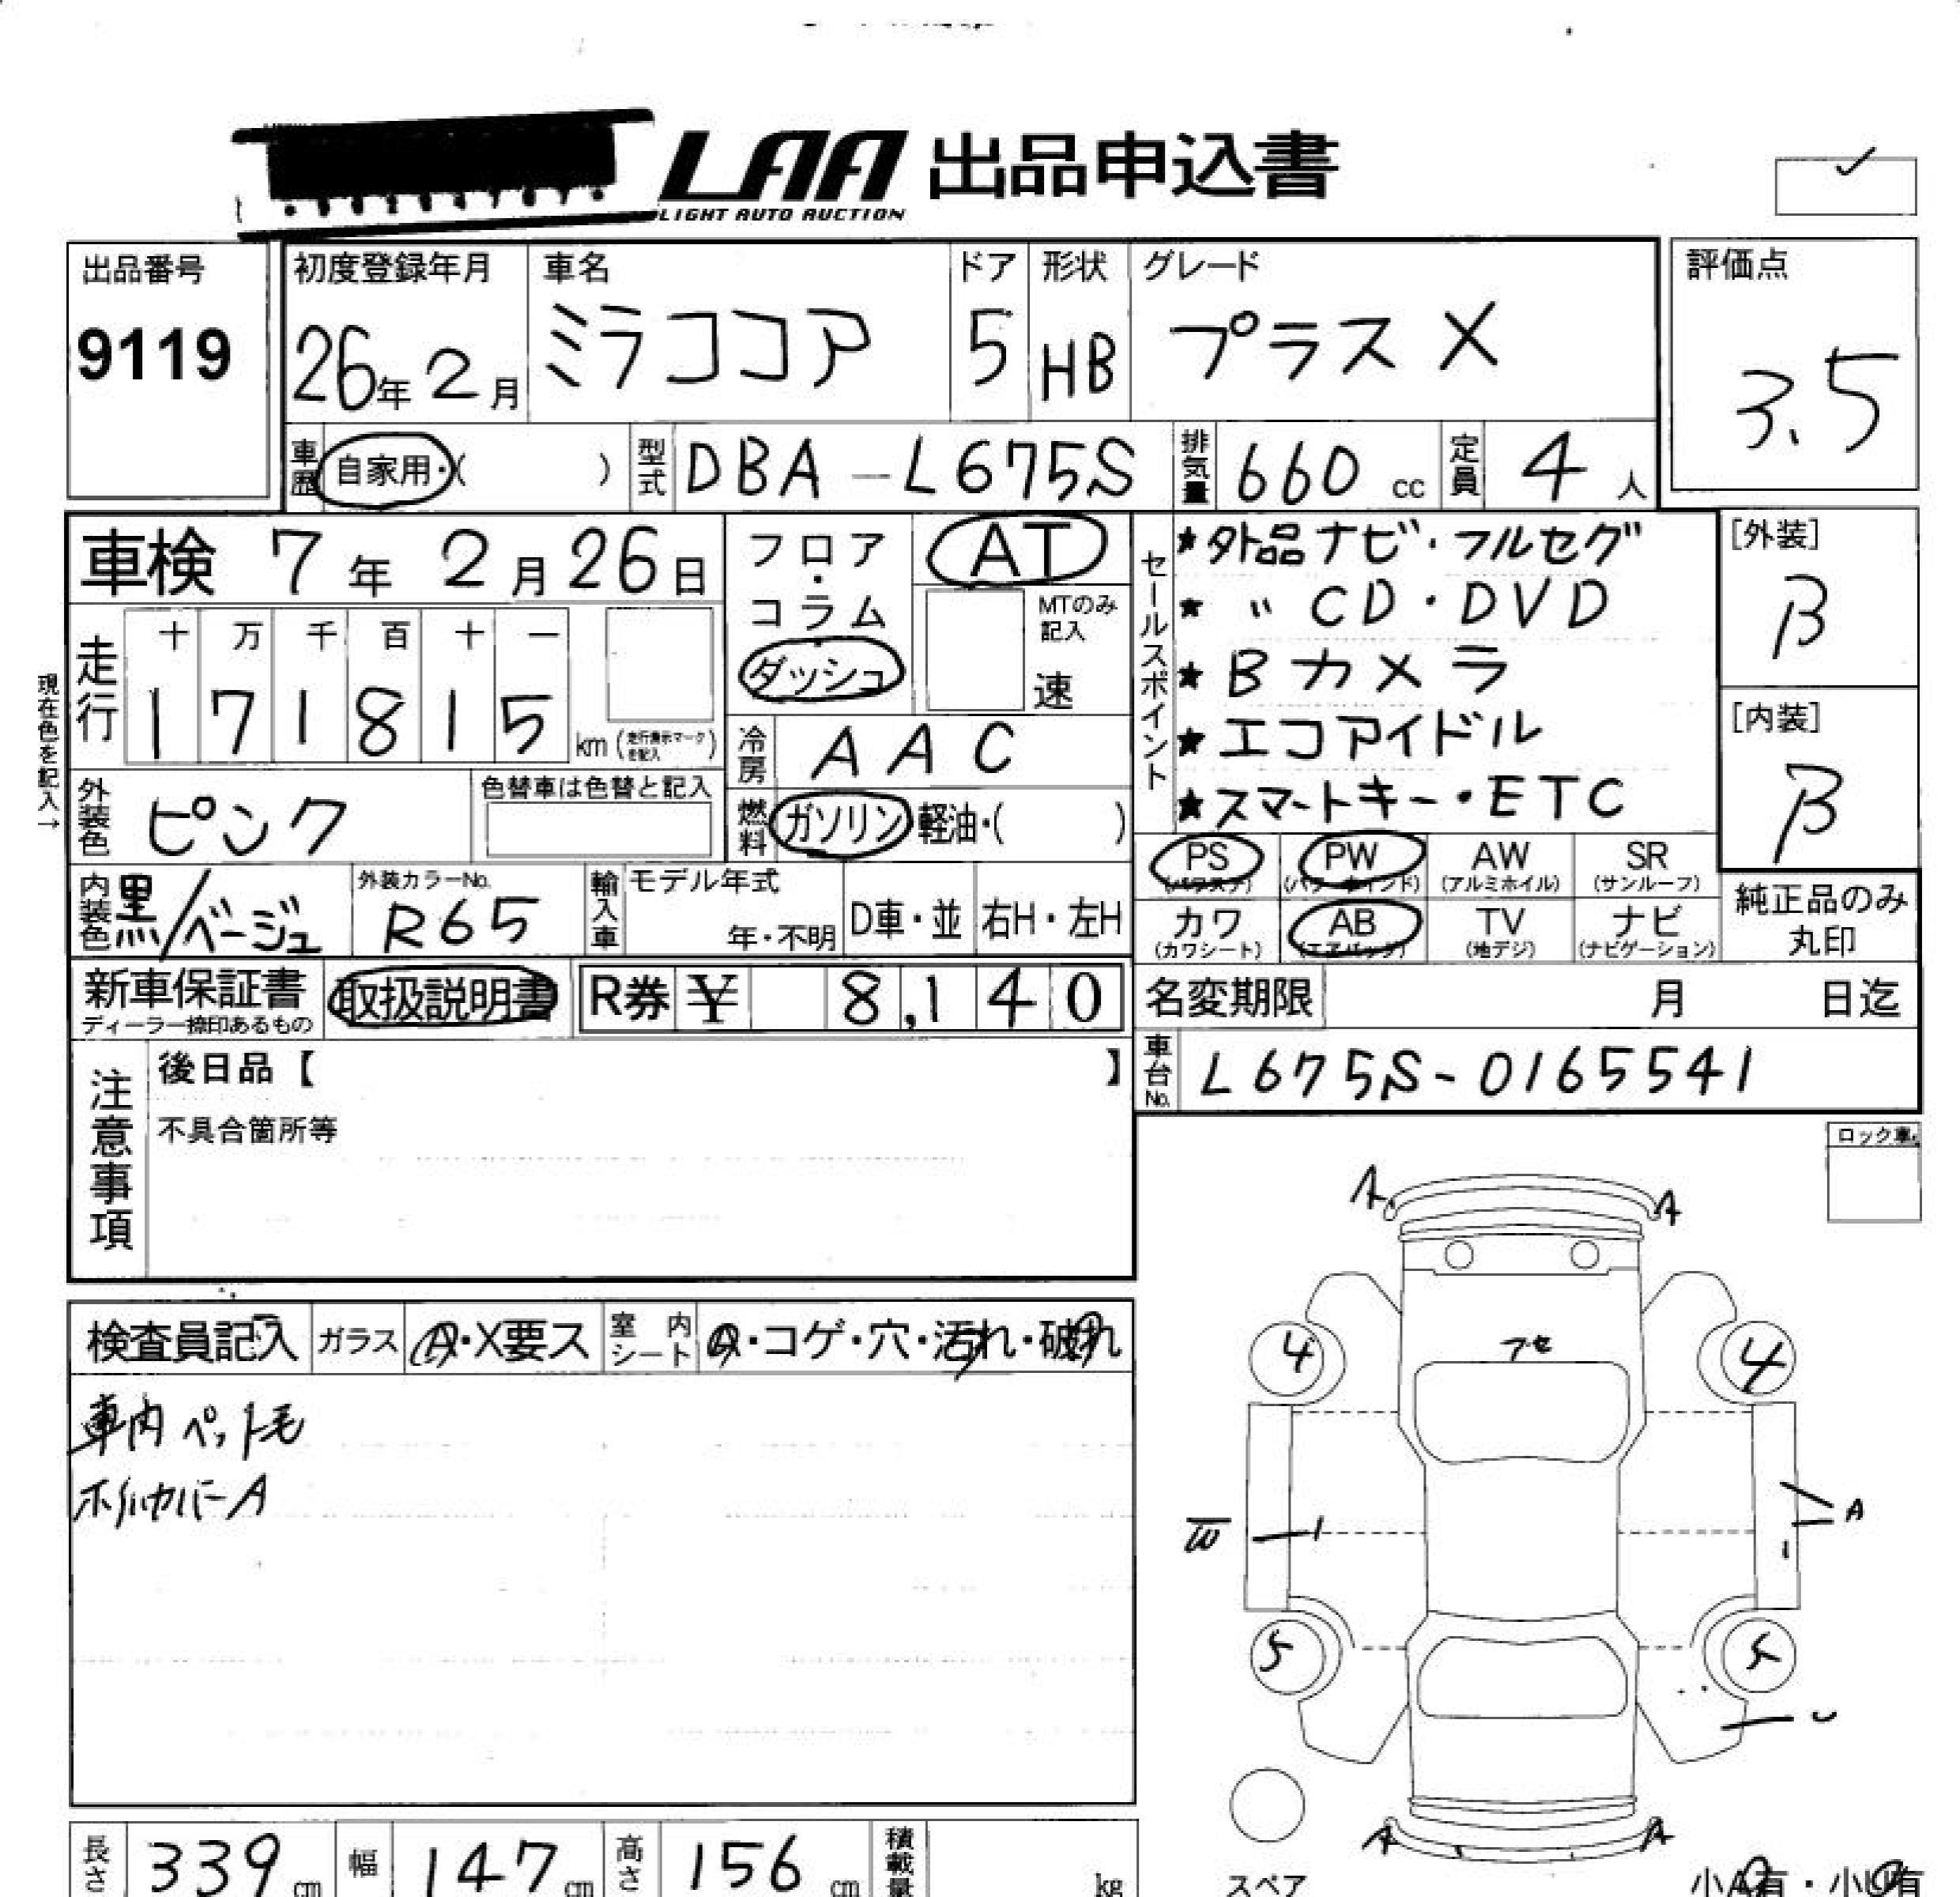 LAA 出品申込書
LIGHT AUTO AUCTION
出品番号
9119
初度登録年月
26年2月
車名
ミラココア
ドア
5
形状
HB
グレード
プラス X
評価点
3.5
車歴 自家用・( )
型式 DBA-L675S
排気量 660 cc
定員 4 人
車検 7年2月26日
フロア・コラム
ダッシュ
AT
MTのみ記入
速
セールスポイント
★外品ナビ・フルセグ
★ 〃 CD・DVD
★Bカメラ
★エコアイドル
★スマートキー・ETC
[外装]
B
[内装]
B
現在色を記入→
走行
十 万 千 百 十 一
1 7 1 8 1 5 km (走行表示マークを記入)
冷房 AAC
外装色 ピンク
色替車は色替と記入
燃料 ガソリン・軽油・( )
PS (パワステ)
PW (パワーウインド)
AW (アルミホイル)
SR (サンルーフ)
カワ (カワシート)
AB (エアバッグ)
TV (地デジ)
ナビ (ナビゲーション)
純正品のみ丸印
内装色 黒/ベージュ
外装カラーNo.
R65
輸入車
モデル年式
年・不明
D車・並
右H・左H
新車保証書
ディーラー捺印あるもの
取扱説明書
R券 ¥ 8,140
名変期限 月 日迄
車台No. L675S-0165541
注意事項
後日品【 】
不具合箇所等
ロック車
検査員記入
ガラス A・X要ス
室内シート A・コゲ・穴・汚れ・破れ
車内ペット毛
ホイルカバーA
A A
4 フセ 4
W A
5 5
A A
スペア
長さ 339 cm
幅 147 cm
高さ 156 cm
積載量 kg
小A有・小U有